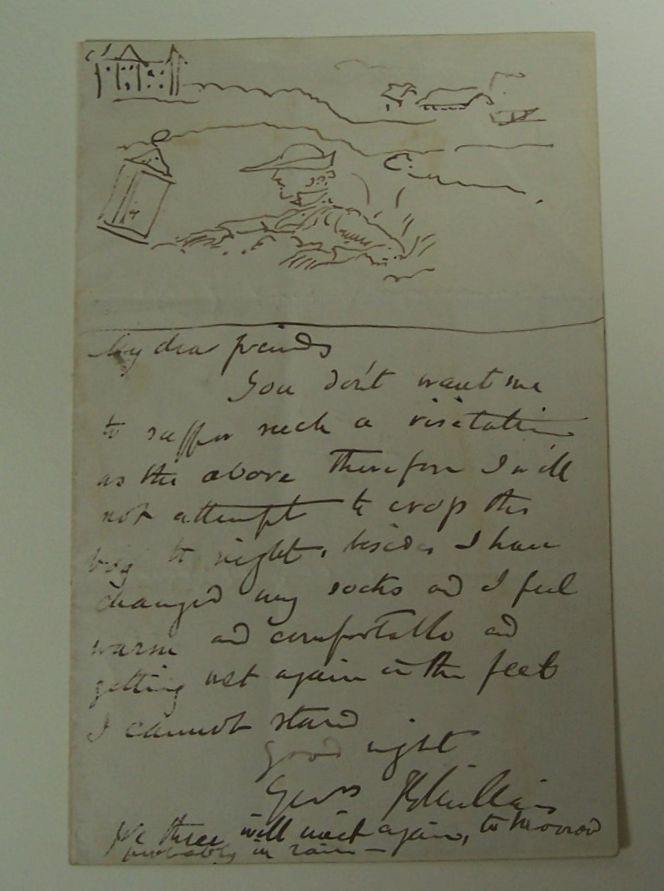 My dear friends
You don't want me
to suffer such a visitation
as the above therefore I will
not attempt to crop the
bog to night, besides I have
changed my socks and I feel
warm and comfortable and
getting wet again in the feet
I cannot stand
Good night
Yours
We three will meet again, to morrow
probably in rain —